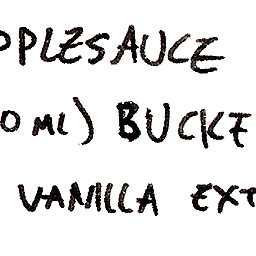 PPLESAUCE
0 ML) BUCKE
VANILLA EXT